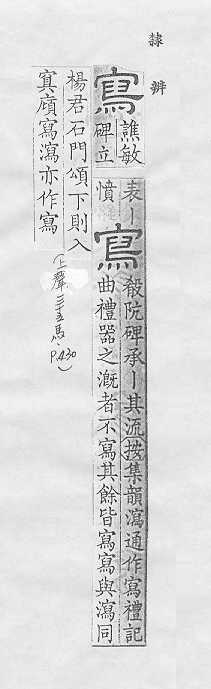 隸辨
寫
譙敏
碑立
表丨
憤
寫
殽阬碑承丨其流按集韻瀉通作寫禮記
曲禮器之溉者不寫其餘皆寫寫與瀉同
楊君石門頌下則入
㝠廎寫瀉亦作寫
(上聲三十五馬、P.430)